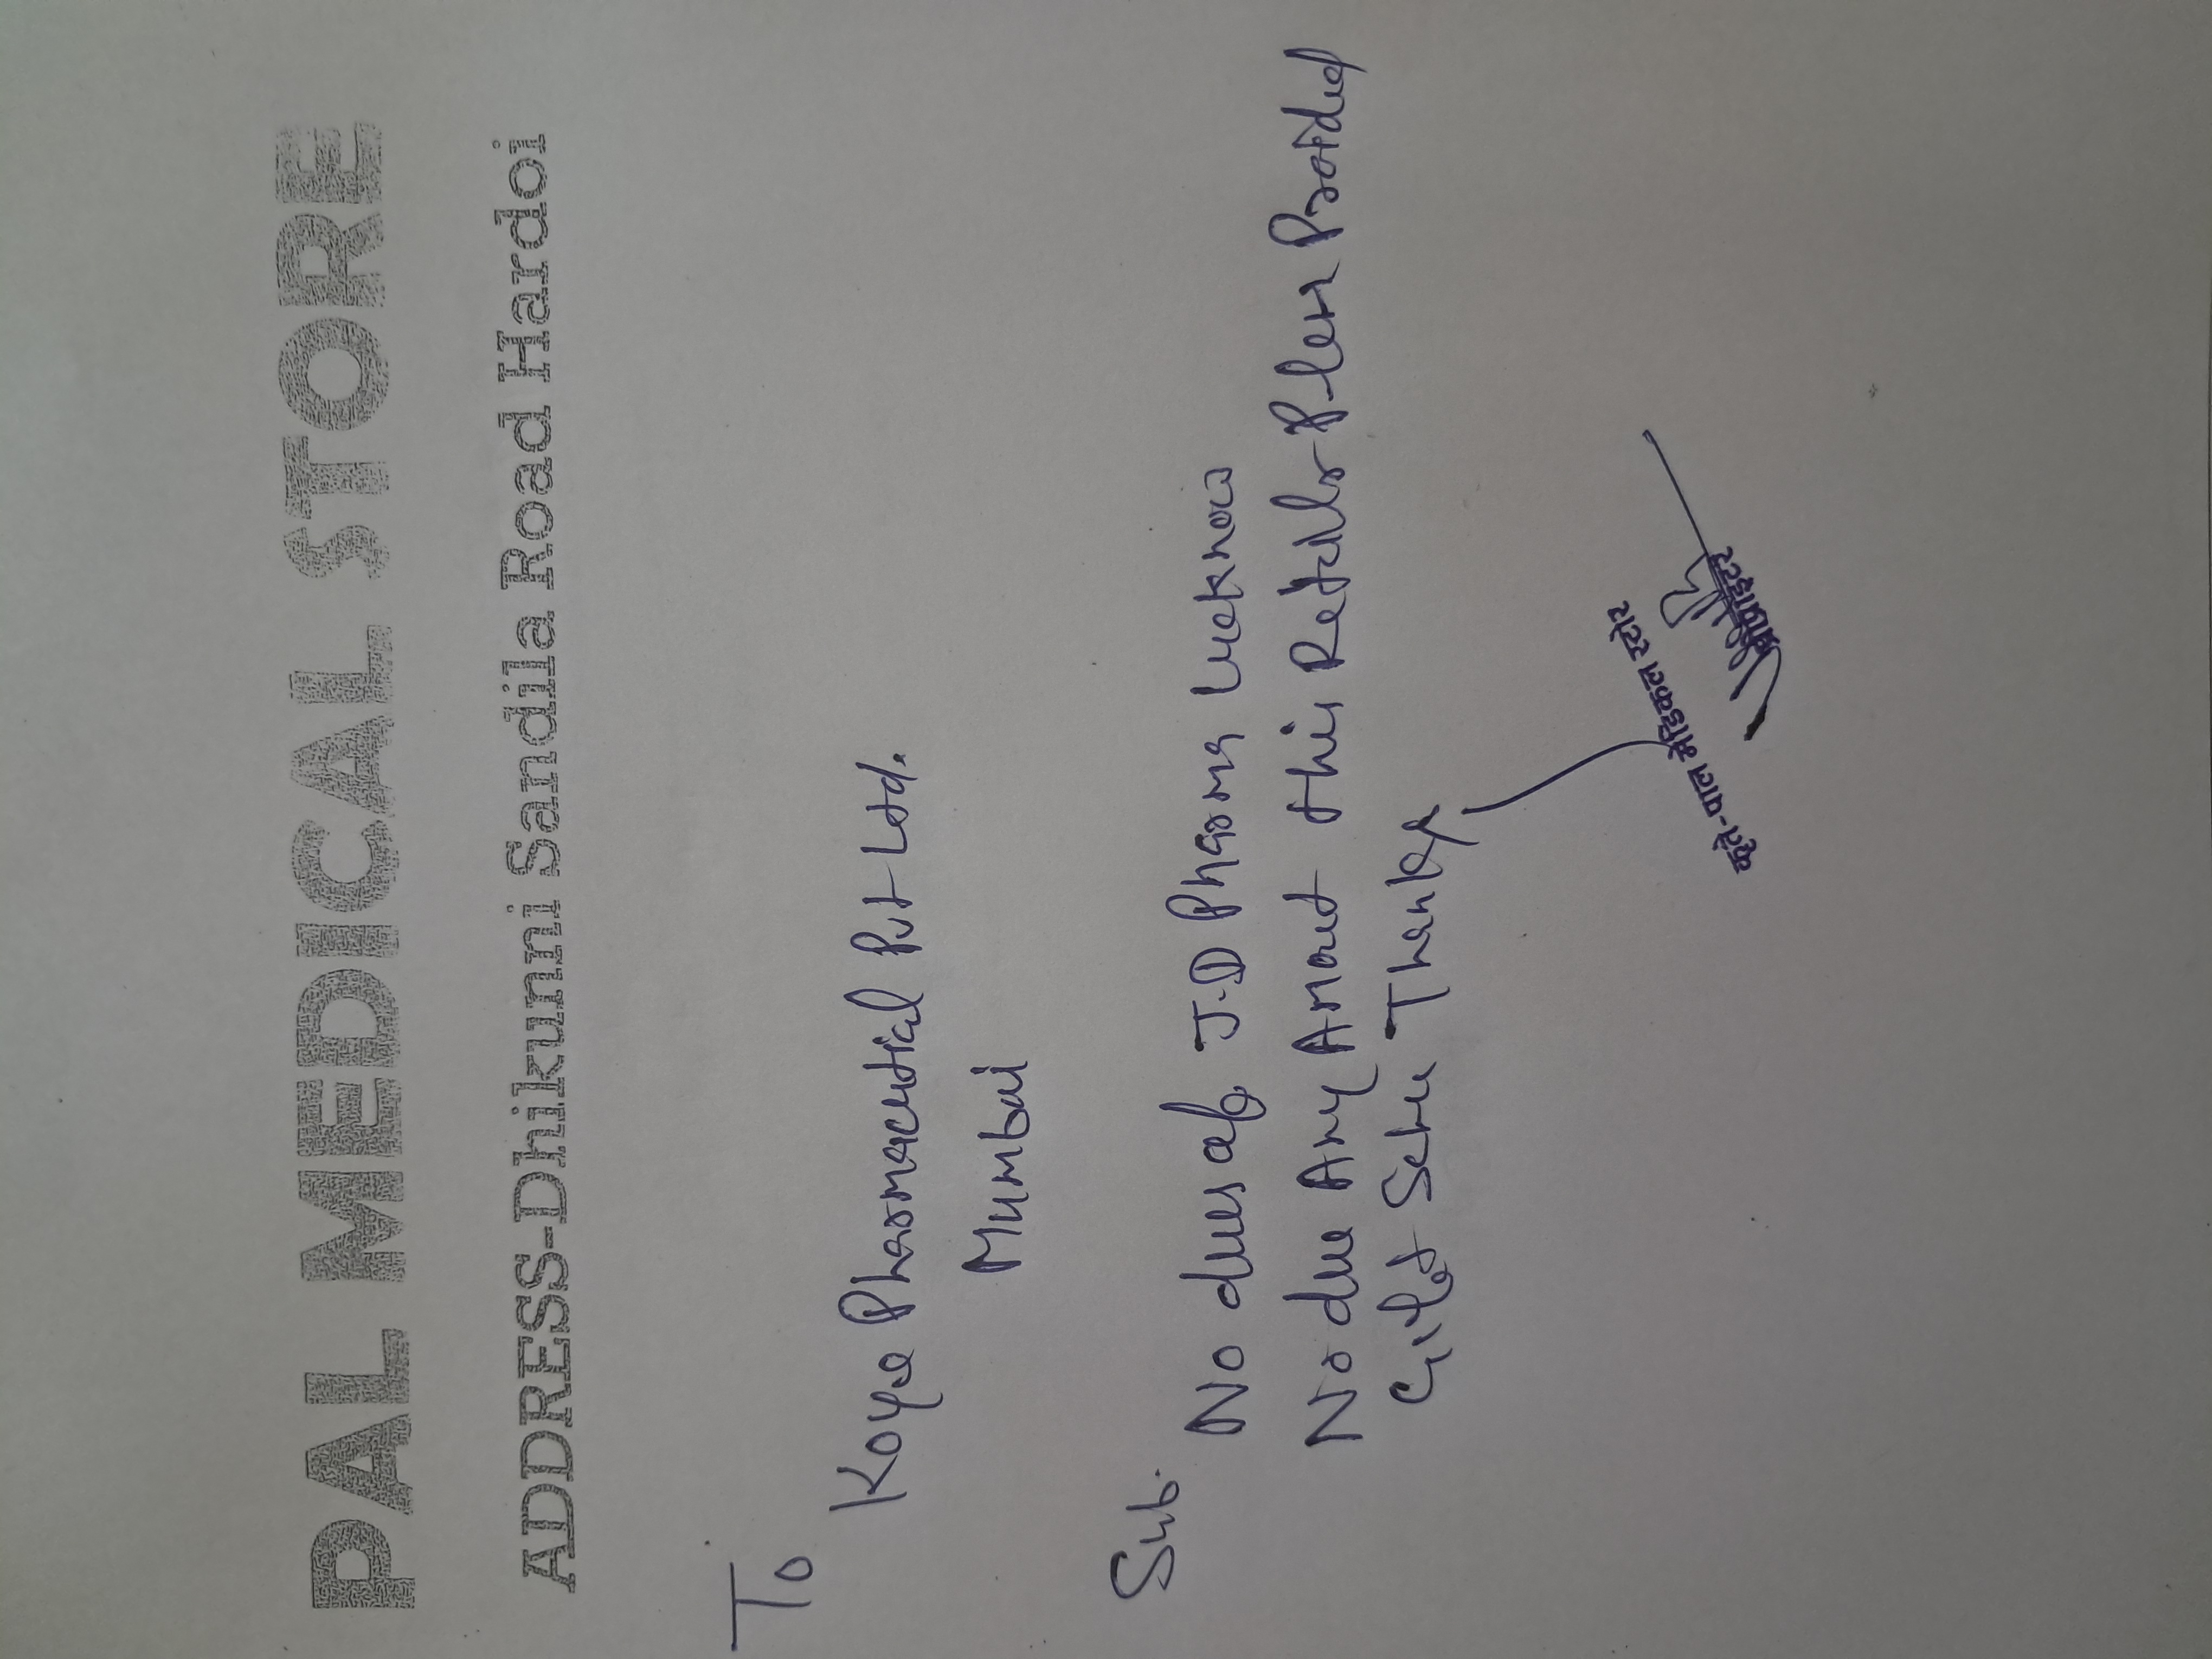 PAL MEDICAL STORE
ADDRESS-Dhikunni Sandila Road Hardoi
To
Koye Pharmaceutical Pvt Ltd.
Mumbai
Sub.
No dues of J.D Pharma Lucknow
No due Any Amout this Retailer Provided
Thanks
कृते-पाल मेडिकल स्टोर
प्रोपराइटर